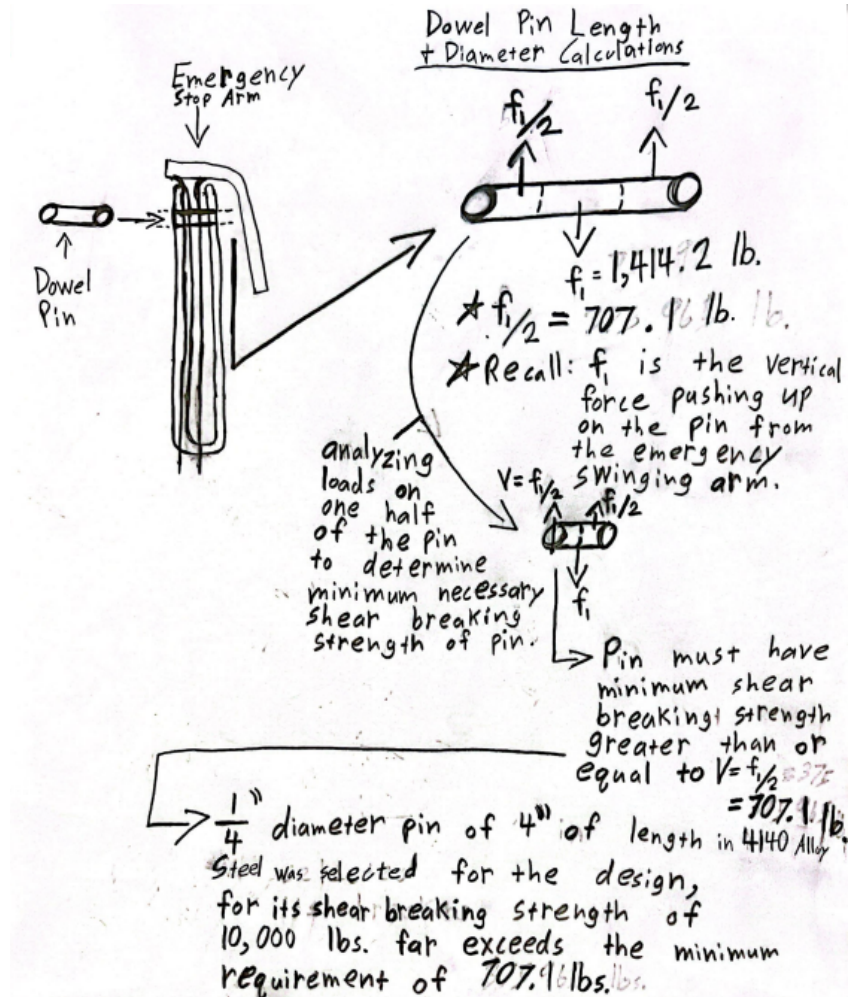 Dowel Pin Length
+ Diameter Calculations
Emergency
Stop Arm
f₁/2
f₁/2
Dowel
Pin
f₁ = 1,414.2 lb.
★ f₁/2 = 707.1 lb. lb.
★ Recall: f₁ is the vertical
force pushing up
on the pin from
the emergency
swinging arm.
analyzing
loads on
one half
of the pin
to determine
minimum necessary
shear breaking
strength of pin.
V=f₁/2
f₁/2
f₁
Pin must have
minimum shear
breaking strength
greater than or
equal to V=f₁/2
=707.1 lb.
1/4" diameter pin of 4" of length in 4140 Alloy
Steel was selected for the design,
for its shear breaking strength of
10,000 lbs. far exceeds the minimum
requirement of 707.1 lbs. lbs.